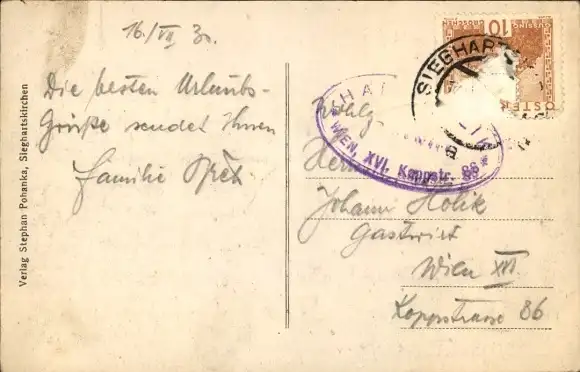 16./VII 30.
Die besten Urlaubs-
Grüße sendet Ihnen
Familie
Verlag Stephan Pohanka, Sieghartskirchen
GROSCHEN
10
ÖSTER
SIEGHARTS
WIEN, XVI. Koppstr. 86
Herrn
Johann Holik
Gastwirt
Wien XVI
Koppstrasse 86